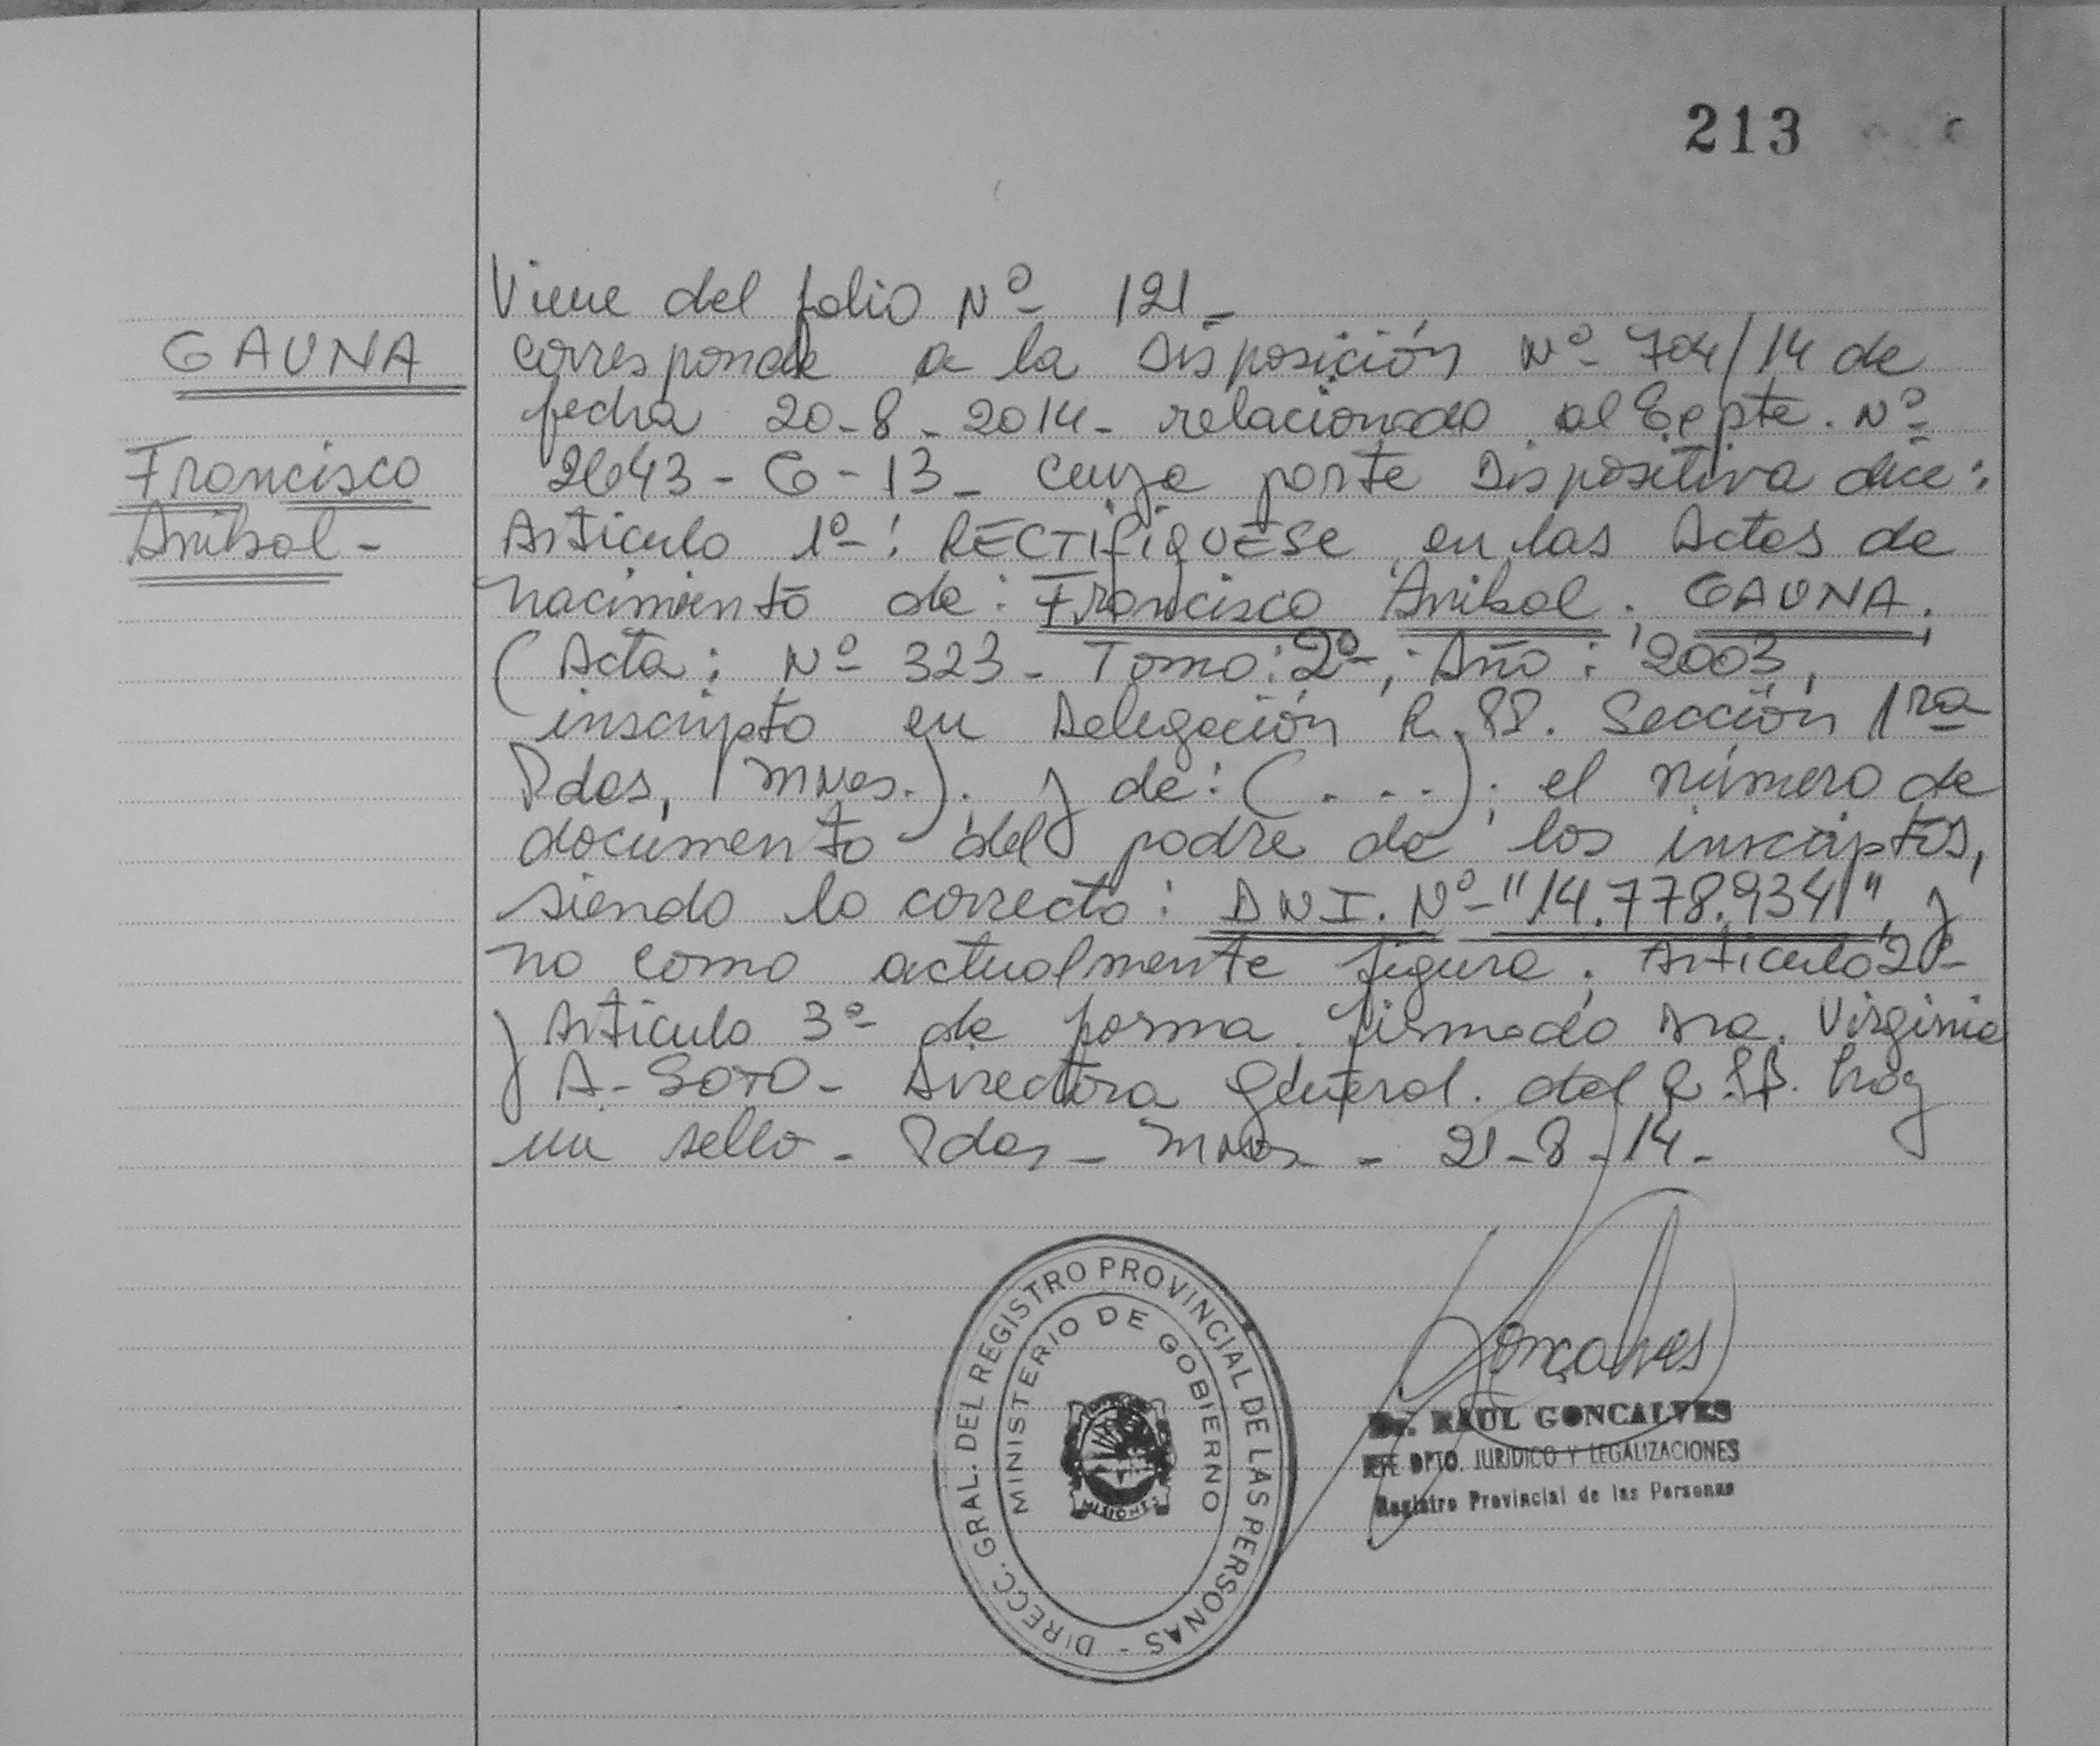 213
GAUNA
Francisco
Anibal -
Viene del folio Nº 121 -
corresponde a la Disposición Nº 704/14 de
fecha 20-8-2014- relacionado al Expte. Nº
2643-G-13- cuya parte Dispositiva dice:
Artículo 1º: RECTIFIQUESE en las Actas de
nacimiento de: Francisco Anibal GAUNA;
(Acta: Nº 323 - Tomo: 2º, Año: 2003,
inscripto en Delegación R.PP. Sección 1ra
Pdas, Mnes.). y de: (...); el número de
documento del padre de los inscriptos,
siendo lo correcto: DNI. Nº "14.778.934", y
no como actualmente figura. Artículo 2º
y Artículo 3º de forma. firmado Dra. Virginia
A. SOTO - Directora General. del R.PP. hay
un sello - Pdas - Mnes - 21-8-14.
DIRECC. GRAL. DEL REGISTRO PROVINCIAL DE LAS PERSONAS -
MINISTERIO DE GOBIERNO
MISIONES
Gonçalves
Dr. RAUL GONCALVES
JEFE DPTO. JURIDICO Y LEGALIZACIONES
Registro Provincial de las Personas